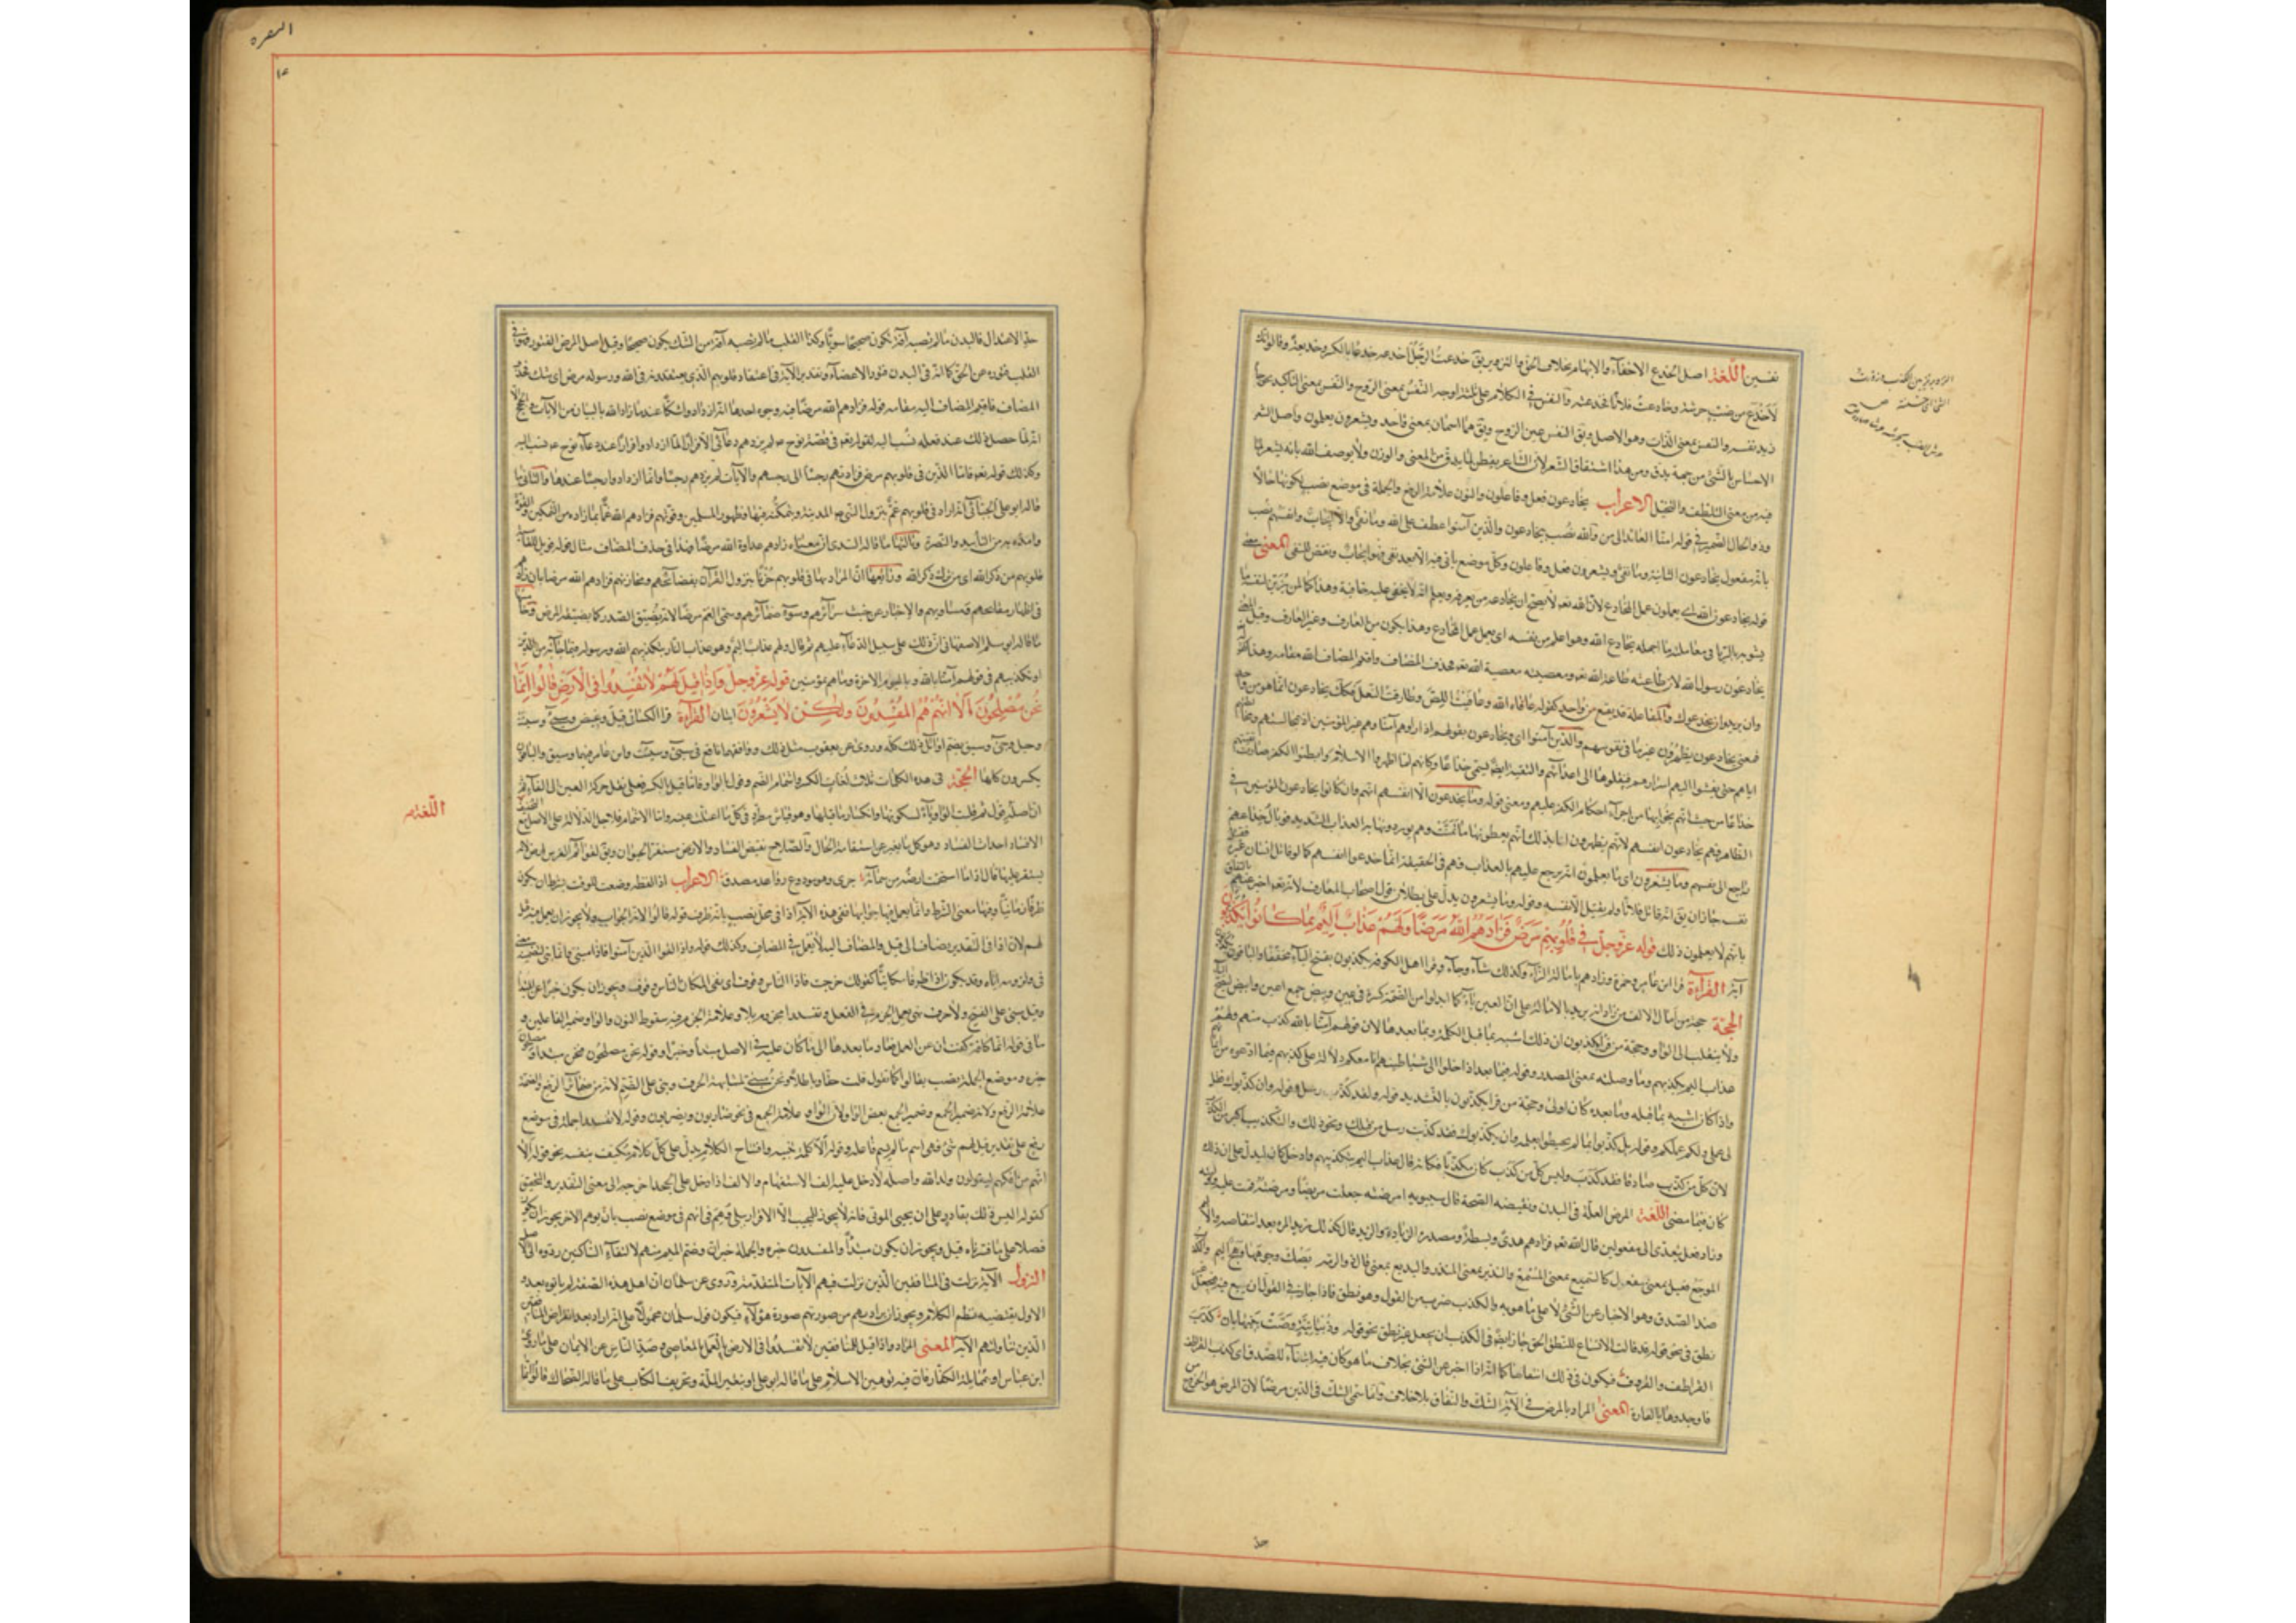 نفسين اللغة اصل الخدع الاخفاء والابهام بخلاف الحق والتزوير يق خدعت الرجل اخدعه خدعا بالكسر وخديعة وقالوا انك
لاخدع من ضب حرشته وخادعت فلانا فخدعته والنفس في الكلام على ثلثة اوجه النفس بمعنى الروح والنفس بمعنى التاكيد نحو جاءني
زيد نفسه والنفس بمعنى الذات وهو الاصل ويق النفس غير الروح ويق هما اسمان بمعنى واحد ويشعرون يعلمون واصل الشعر
الاحساس بالشئ من جهة يدق ومن هذا اشتقاق الشعر لان الشاعر يفطن لما يدق من المعنى والوزن ولا يوصف الله بانه يشعر لما
فيه من معنى التلطف والتخيل الاعراب يخادعون فعل وفاعلون والنون علامة الرفع والجملة في موضع نصب بكونها حالا
وذو الحال الضمير في قوله امنا العائد الى من والله نصب بيخادعون والذين آمنوا عطف على الله وما نفي والا ايجاب وانفسهم نصب
بانه مفعول يخادعون الثانية وما نفي ويشعرون فعل وفاعلون وكل موضع ياتي فيه الا بعد نفي فهو ايجاب ونقض للنفي المعنى معنى
قوله يخادعون الله اي يعملون عمل المخادع لان الله تعالى لا يصح ان يخادعه من يعرفه ويعلم انه لا يخفى عليه خافية وهذا كما لمن يزين لنفسه ما
يشوبه بالريا في معاملته ما اجهله يخادع الله وهو اعلم من نفسه اي يعمل عمل المخادع وهذا يكون من العارف وغير العارف وقيل المعنى
يخادعون رسول الله لان طاعته طاعة الله ومعصيته معصية الله فحذف المضاف واقيم المضاف اليه مقامه وهذا كقوله
وان يريدوا ان يخدعوك والمفاعلة قد يقع من واحد كقوله عافاه الله وعاقبت اللص وطارقت النعل فكانه يخادعون انما هو من واحد
فمعنى يخادعون يظهرون غير ما في نفوسهم والذين آمنوا اي ويخادعون بقولهم اذا راوهم آمنا وهم غير المؤمنين
اياهم حتى يفشوا اليهم اسرارهم فينقلوها الى اعدائهم والتقية ايضا يسمى خداعا وكانهم لما اظهروا الاسلام وابطنوا الكفر صارت
خداعا من حيث انهم نجوا بها من اجراء احكام الكفر عليهم ومعنى قوله وما يخدعون الا انفسهم انهم وان كانوا يخادعون المؤمنين في
الظاهر فهم يخادعون انفسهم لانهم يظهرون لها بذلك انهم يعطونها ما تمنت وهم يوردونها به العذاب الشديد فوبال خداعهم
راجع الى نفسهم وما يشعرون اي ما يعلمون انه يرجع عليهم بالعذاب فهم في الحقيقة انما خدعوا انفسهم كما لو قاتل انسان غيره
نفسه جاز ان يق انه قاتل فلانا ولم يقتل الا نفسه وقوله وما يشعرون يدل على بطلان قول اصحاب المعارف لانه تعالى اخبر عنهم
بانهم لا يعلمون ذلك قوله عز وجل في قلوبهم مرض فزادهم الله مرضا ولهم عذاب اليم بما كانوا يكذبون
آية القراءة قرا ابن عامر وحمزة فزادهم بامالة الزاء وكذلك شاء وجاء وقرا اهل الكوفة يكذبون بفتح الياء مخففا والباقون
الحجة حجة من امال الالف من زاد انه يريد بالامالة على ان العين ياء كما ابدلوا من الضمة كسرة في عين وبيض جمع اعين وابيض لتصح
ولا ينقلب الى الواو وحجة من قرا يكذبون ان ذلك اشبه بما قبل الكلمة وبما بعدها لان قولهم آمنا بالله كذب منهم ولهم
عذاب اليم بكذبهم وما وصلته بمعنى المصدر وقوله فيما بعد اذا خلوا الى شياطينهم انا معكم دلالة على كذبهم فيما ادعوه من ايمانهم
واذا كان اشبه بما قبله وما بعده كان اولى وحجة من قرا يكذبون بالتشديد قوله ولقد كذبت رسل وقوله وان كذبوك فقل
لي عملي ولكم عملكم وقوله بل كذبوا بما لم يحيطوا بعلمه وان يكذبوك فقد كذبت رسل من قبلك ونحو ذلك والتكذيب اكبر من الكذب
لان كل من كذب صادقا فقد كذب وليس كل من كذب كان مكذبا فكانه قال عذاب اليم بتكذيبهم وادخل كان ليدل على ان ذلك
كان فيما مضى اللغة المرض العلة في البدن ونقيضه الصحة قال سيبويه امرضته جعلته مريضا ومرضته قمت عليه ووليته
وزاد فعل يتعدى الى مفعولين قال الله تعالى فزادهم هدى وبسطة ومصدره الزيادة والزيد
الموجع فعيل بمعنى مفعل كالسميع بمعنى المسمع والنذير بمعنى المنذر والبديع بمعنى قال ذو الرمة يصك وجوهها وهج اليم
ضد الصدق وهو الاخبار عن الشئ لا على ما هو به والكذب ضرب من القول وهو نطق فاذا جاز في القول ان يتسع فيه فيجعل
نطق في نحو قوله قد قالت الانساع للبطن الحق جاز ايضا في الكذب ان يجعل غير نطق نحو قوله وذبيانية وصت بنيها بان كذب
القراطف والقروف فيكون في ذلك انتفاء لها كما انه اذا اخبر عن الشئ بخلاف ما هو كان فيه انتفاء للصدق اي كذب القراطف
فاوجدوها بالغارة المعنى المراد بالمرض في الآية الشك والنفاق بلا خلاف وانما سمي الشك في الدين مرضا لان المرض هو الخروج
البقره
حد الاعتدال فالبدن ما لم يصبه آفة يكون صحيحا سويا وكذا القلب ما لم يصبه آفة من الشك يكون صحيحا وقيل اصل المرض الفتور فهو في
القلب فتوره عن الحق كما انه في البدن فتور الاعضاء وتقدير الآية في اعتقاد قلوبهم الذي يعتقدونه في الله ورسوله مرض اي شك فحذف
المضاف فاقيم المضاف اليه مقامه قوله فزادهم الله مرضا فيه وجوه احدها انه ازدادوا شكا عندما زاد الله بالبيان من الآيات والحجج الا
انه لما حصل ذلك عند فعله نسب اليه لقوله تعالى في قصة نوح فلم يزدهم دعائي الا فرارا لما ازدادوا فرارا عند دعاء نوح نسب اليه
وكذلك قوله تعالى فاما الذين في قلوبهم مرض فزادتهم رجسا الى رجسهم والآيات لم يزدهم رجسا وانما ازدادوا رجسا عندها والثاني ما
قاله ابو علي الجبائي انه اراد في قلوبهم غم بنزول النبي ص المدينة وبتمكنه فيها وظهور المسلمين وقوتهم فزادهم الله غما بما زاده من التمكين والقوة
وامده به من التأييد والنصرة وثالثها ما قاله السدي ان معناه زادهم عداوة الله مرضا وهذا في حذف المضاف مثل قوله فويل للقاسية
قلوبهم من ذكر الله اي من ترك ذكر الله ورابعها ان المراد بها في قلوبهم حزنا بنزول القرآن بفضائحهم ومخازيهم فزادهم الله مرضا بان زاد
في اظهار مقابحهم ومساويهم والاخبار عن خبث سرائرهم وسوء ضمائرهم وسمي الغم مرضا لانه يضيق الصدر كما يضيقه المرض وخامسها
ما قاله ابو مسلم الاصفهاني ان ذلك على سبيل الدعاء عليهم ثم قال ولهم عذاب اليم وهو عذاب النار بتكذيبهم الله ورسوله فيما جاء به من الدين
او بكذبهم في قولهم آمنا بالله وباليوم الاخر وما هم بمؤمنين قوله عز وجل واذا قيل لهم لا تفسدوا في الارض قالوا انما
نحن مصلحون الا انهم هم المفسدون ولكن لا يشعرون ايتان القراءة قرا الكسائي قيل وغيض وسيء وسيئت
وحيل وجيء وسيق بضم اوائل ذلك كله وروى عن يعقوب مثل ذلك ووافقهما نافع في سيء وسيئت وابن عامر فيهما وسيق والباقون
يكسرون كلها الحجة في هذه الكلمات ثلاث لغات الكسر واشمام الضم وقول بالواو فاما قيل بالكسر فعلى نقل حركة العين الى الفاء
الافساد احداث الفساد وهو كل ما يغير عن استقامة الحال والصلاح نقيض الفساد والارض مستقر الحيوان ويق لقوائم الفرس ارض لانه
يستقر عليها قال اذا ما استحمت ارضه من سمائه جرى وهو مودوع وواعد مصدق الاعراب اذا لفظة وضعت للوقت بشرط ان يكون
ظرفا زمانيا وفيها معنى الشرط وانما يعمل فيها جوابها ففي هذه الآية اذا في محل نصب بانه ظرف قوله قالوا لانه الجواب ولا يجوز ان يعمل فيه قيل
لهم لان اذا في التقدير مضاف الى قيل والمضاف اليه لا يعمل في المضاف وكذلك قوله واذا لقوا الذين آمنوا فاذا مبني وانما بني لتضمنه
وقد يكون اذا ظرفا مكانيا كقولك خرجت فاذا الناس وقوف اي ففي المكان الناس وقوف ويجوز ان يكون خبرا عن المبتدا
وقيل مبني على الفتح ولا حرف نهي يعمل الجزم في الفعل وتفسدوا مجزوم بلا وعلامة الجزم فيه سقوط النون والواو ضمير الفاعلين و
ما في قوله انما كافة كفت ان عن العمل فيما بعدها الى ما كان عليه في الاصل مبتدا وخبرا وقوله نحن مصلحون فنحن مبتدا
خبره وموضع الجملة نصب بقالوا كما تقول قلت حقا وباطلا ونحن مبني لمشابهة الحرف وبني على الضم لانه من ضمائر الرفع والضمة
علامة الرفع ولانه ضمير الجمع وضمير الجمع بعض الواو ولان الواو علامة الجمع في نحو ضاربون ويضربون وقوله لا تفسدوا جملة في موضع
رفع على تقدير قيل لهم شئ فهي اسم ما لم يسم فاعله وقوله الا كلمة تنبيه وافتتاح الكلام يدخل على كل كلام مكتف بنفسه نحو قوله الا
انهم من افكهم ليقولون ولد الله واصله لا دخل عليه الف الاستفهام والالف اذا دخل على الجحد اخرجه الى معنى التقدير والتحقيق
كقوله اليس ذلك بقادر على ان يحيي الموتى فانه لا يجوز للمجيب الا الاقرار ببلى وهم في انهم في موضع نصب بان وهم الاخر يجوز ان يكون
فصلا على ما فسرناه قبل ويجوز ان يكون مبتدأ والمفسدون خبره والجملة خبر ان وضم الميم منهم لالتقاء الساكنين ردوه الى الاصل
النزول الآية نزلت في المنافقين الذين نزلت فيهم الآيات المتقدمة وروى عن سلمان ان اهل هذه الصفة لم ياتوا بعد و
الاول يقتضيه نظم الكلام ويجوز ان يراد بهم من صورتهم صورة هؤلاء فيكون قول سلمان محمولا على انه اراد بعد انقراض المنافقين
الذين تناولتهم الآية المعنى المراد واذا قيل للمنافقين لا تفسدوا في الارض بالعمل بالمعاصي وصد الناس عن الايمان على ما روى عن
ابن عباس او بممايلة الكفار فان فيه توهين الاسلام على ما قاله ابو علي او بتغيير الملة وتحريف الكتاب على ما قاله الضحاك قالوا انما
اللغة